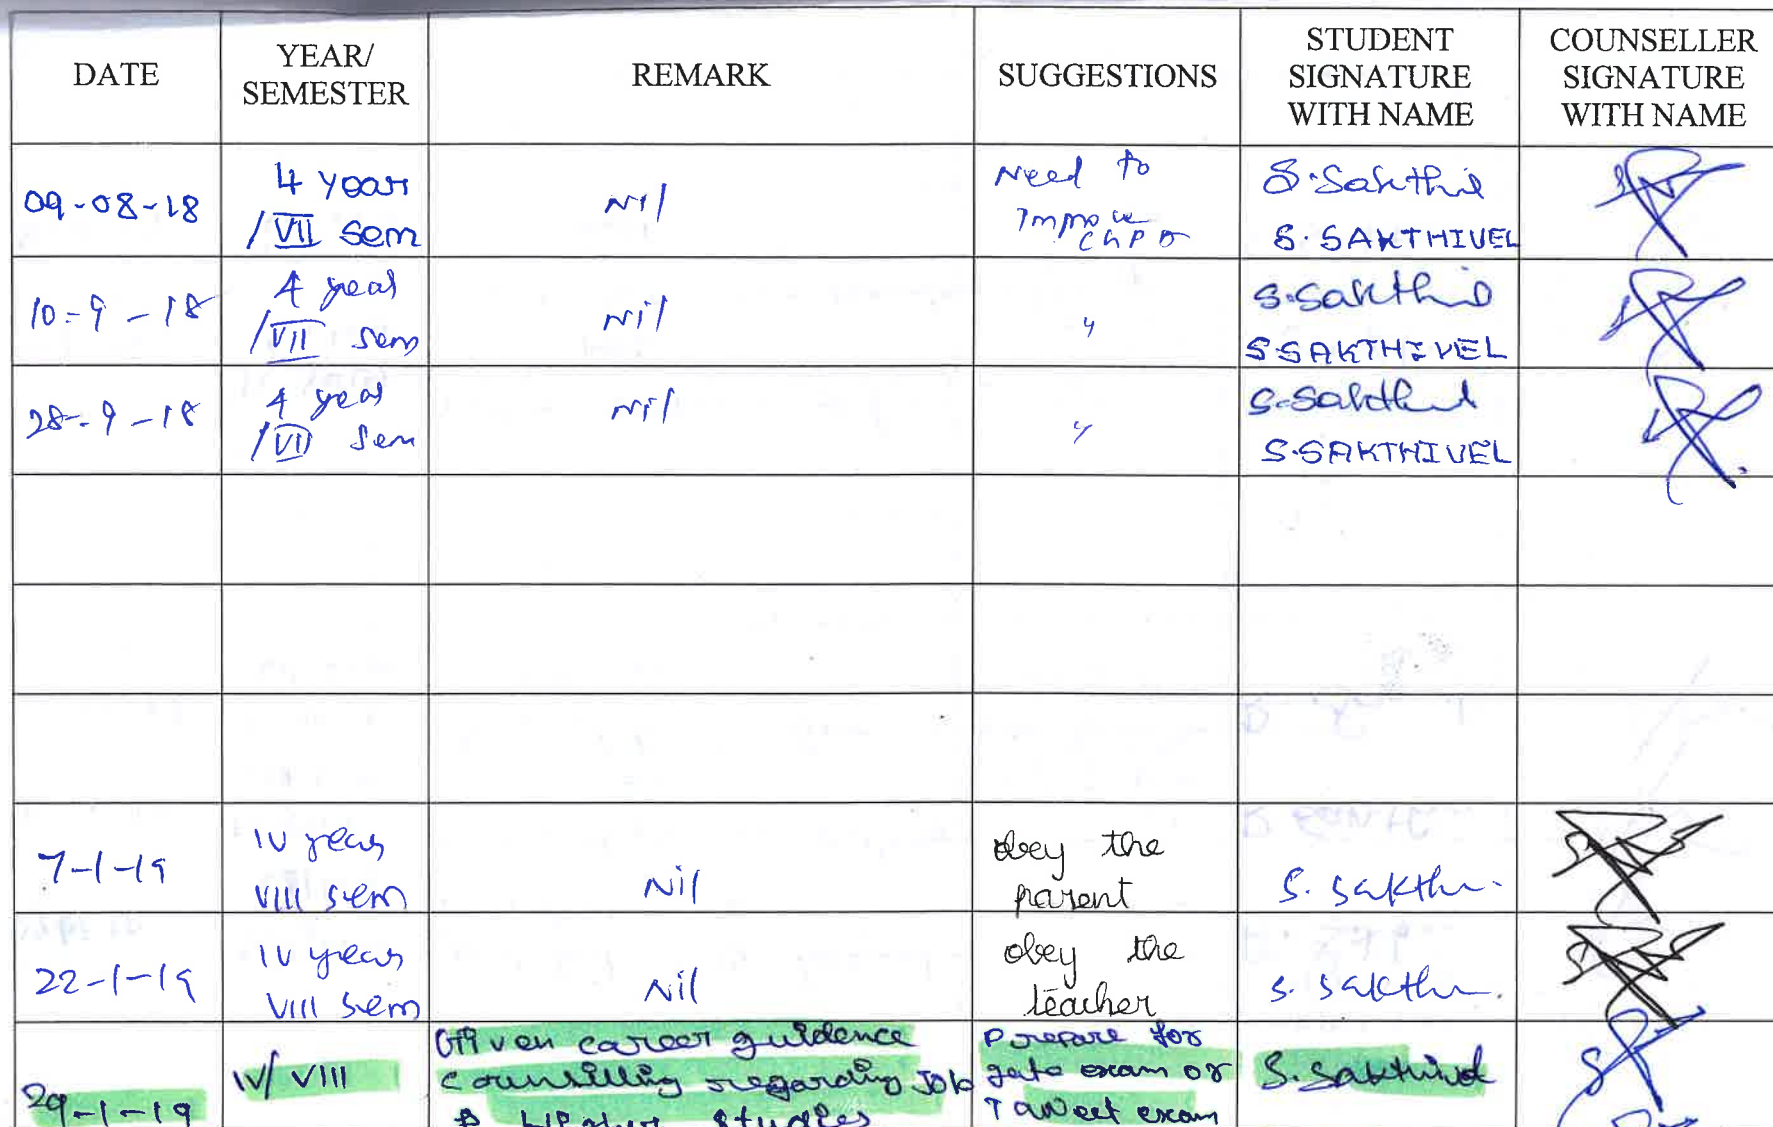 DATE
YEAR/
SEMESTER
REMARK
SUGGESTIONS
STUDENT
SIGNATURE
WITH NAME
COUNSELLER
SIGNATURE
WITH NAME
09-08-18
4 year
/VII sem
Nil
Need to
Improve
CGPA
S.Sakthi
S. SAKTHIVEL
10-9-18
4 year
/VII sem
Nil
"
S.Sakthi
S.SAKTHIVEL
28-9-18
4 year
/VII sem
Nil
"
S.Sakthi
S.SAKTHIVEL
7-1-19
IV year
VIII sem
Nil
obey the
parent
S. Sakthi
22-1-19
IV year
VIII sem
Nil
obey the
teacher
S. Sakthi
29-1-19
IV/ VIII
Given career guidence
counsilling regarding Job
& higher studies
Prepare for
gate exam or
Tancet exam
S.Sakthivel